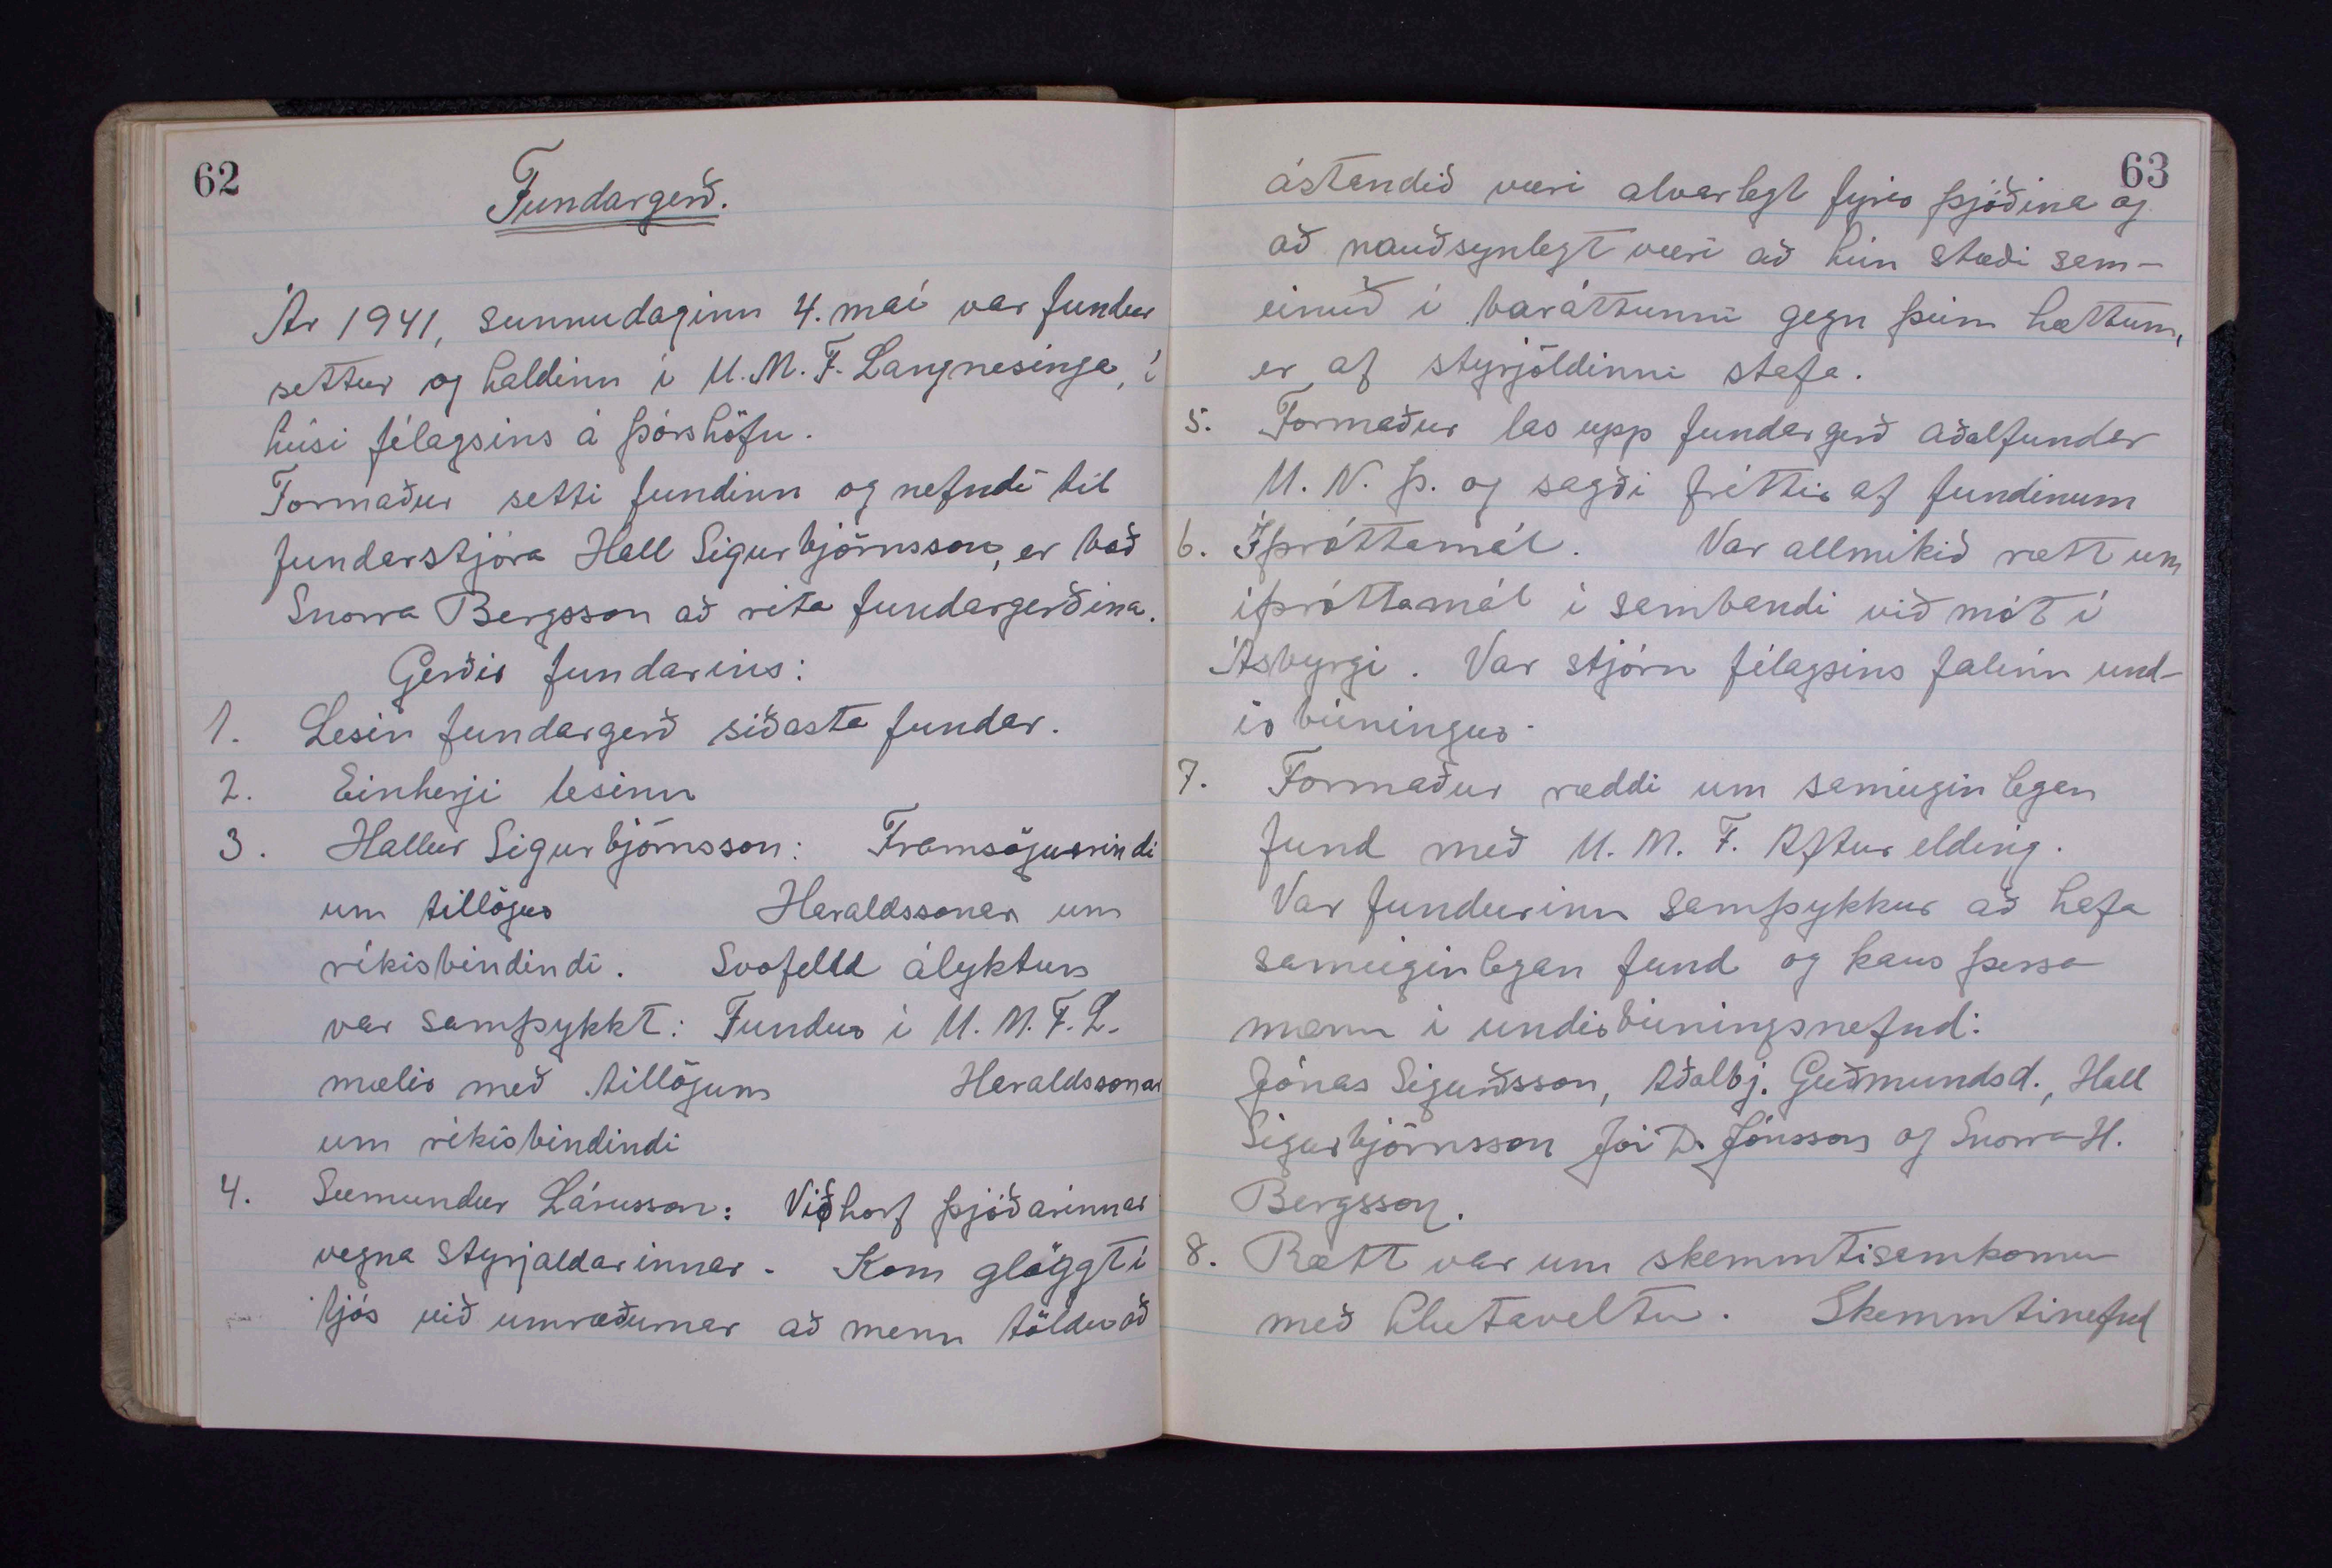 62
Fundargerð.
Ár 1941, sunnudaginn 4. maí var fundur
settur og haldinn í U.M.F. Langnesinga, í
húsi félagsins á Þórshöfn.
Formaður setti fundinn og nefndi til
fundarstjóra Hall Sigurbjörnsson, er bað
Snorra Bergsson að rita fundargerðina.
Gerðir fundarins:
1. Lesin fundargerð síðasta fundar.
2. Einherji lesinn
3. Hallur Sigurbjörnsson: Framsöguerindi
um tillögur Haraldssonar um
ríkisbindindi. Svofelld ályktun
var samþykkt: Fundur í U.M.F.L.
mælir með tillögum Haraldssonar
um ríkisbindindi
4. Sæmundur Lárusson: Viðhorf þjóðarinnar
vegna styrjaldarinnar. Kom glöggt í
ljós við umræðurnar að menn töldu að
63
ástandið væri alvarlegt fyrir þjóðina og
að nauðsynlegt væri að hún stæði sam-
einuð í baráttunni gegn þeim hættum,
er af styrjöldinni stafa.
5. Formaður las upp fundargerð aðalfundar
U.N.Þ. og sagði fréttir af fundinum
6. Íþróttamál. Var allmikið rætt um
íþróttamál í sambandi við mót í
Ásbyrgi. Var stjórn félagsins falinn und-
irbúningur.
7. Formaður ræddi um sameiginlegan
fund með U.M.F. Afturelding.
Var fundurinn samþykkur að hafa
sameiginlegan fund og kaus þessa
menn í undirbúningsnefnd:
Jónas Sigurðsson, Aðalbj. Guðmundsd., Hall
Sigurbjörnsson Jói D. Jónsson og Snorra H.
Bergsson.
8. Rætt var um skemmtisamkomu
með hlutaveltu. Skemmtinefnd